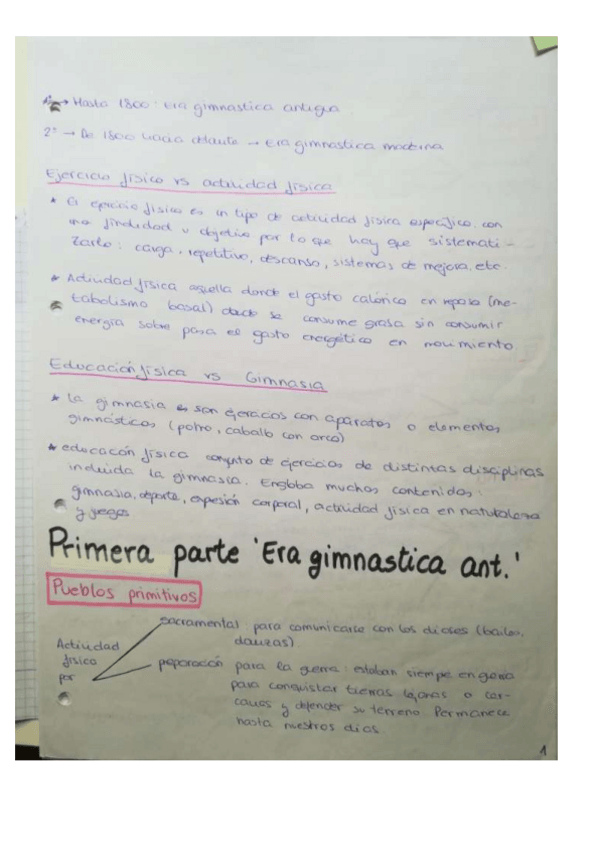 1º → Hasta 1800: Era gimnastica antigua
2º → De 1800 hacia delante → Era gimnastica moderna
Ejercicio físico vs actividad física
* El ejercicio físico es un tipo de actividad física específico con
una finalidad u objetivo por lo que hay que sistemati-
zarlo: carga, repetitivo, descanso, sistemas de mejora, etc.
* Actividad física aquella donde el gasto calórico en reposo (me-
tabolismo basal) donde se consume grasa sin consumir
energía sobre pasa el gasto energético en movimiento.
Educación física vs Gimnasia
* La gimnasia son ejercicios con aparatos o elementos
gimnásticos (potro, caballo con arco)
* educación física conjunto de ejercicios de distintas disciplinas
incluida la gimnasia. Engloba muchos contenidos:
gimnasia, deporte, expresión corporal, actividad física en naturaleza
y juegos
Primera parte 'Era gimnastica ant.'
Pueblos primitivos
Actividad física por
sacramental: para comunicarse con los dioses (bailes,
danzas).
preparación para la guerra: estaban siempre en guerra
para conquistar tierras lejanas o cer-
canas y defender su terreno. Permanece
hasta nuestros días.
1